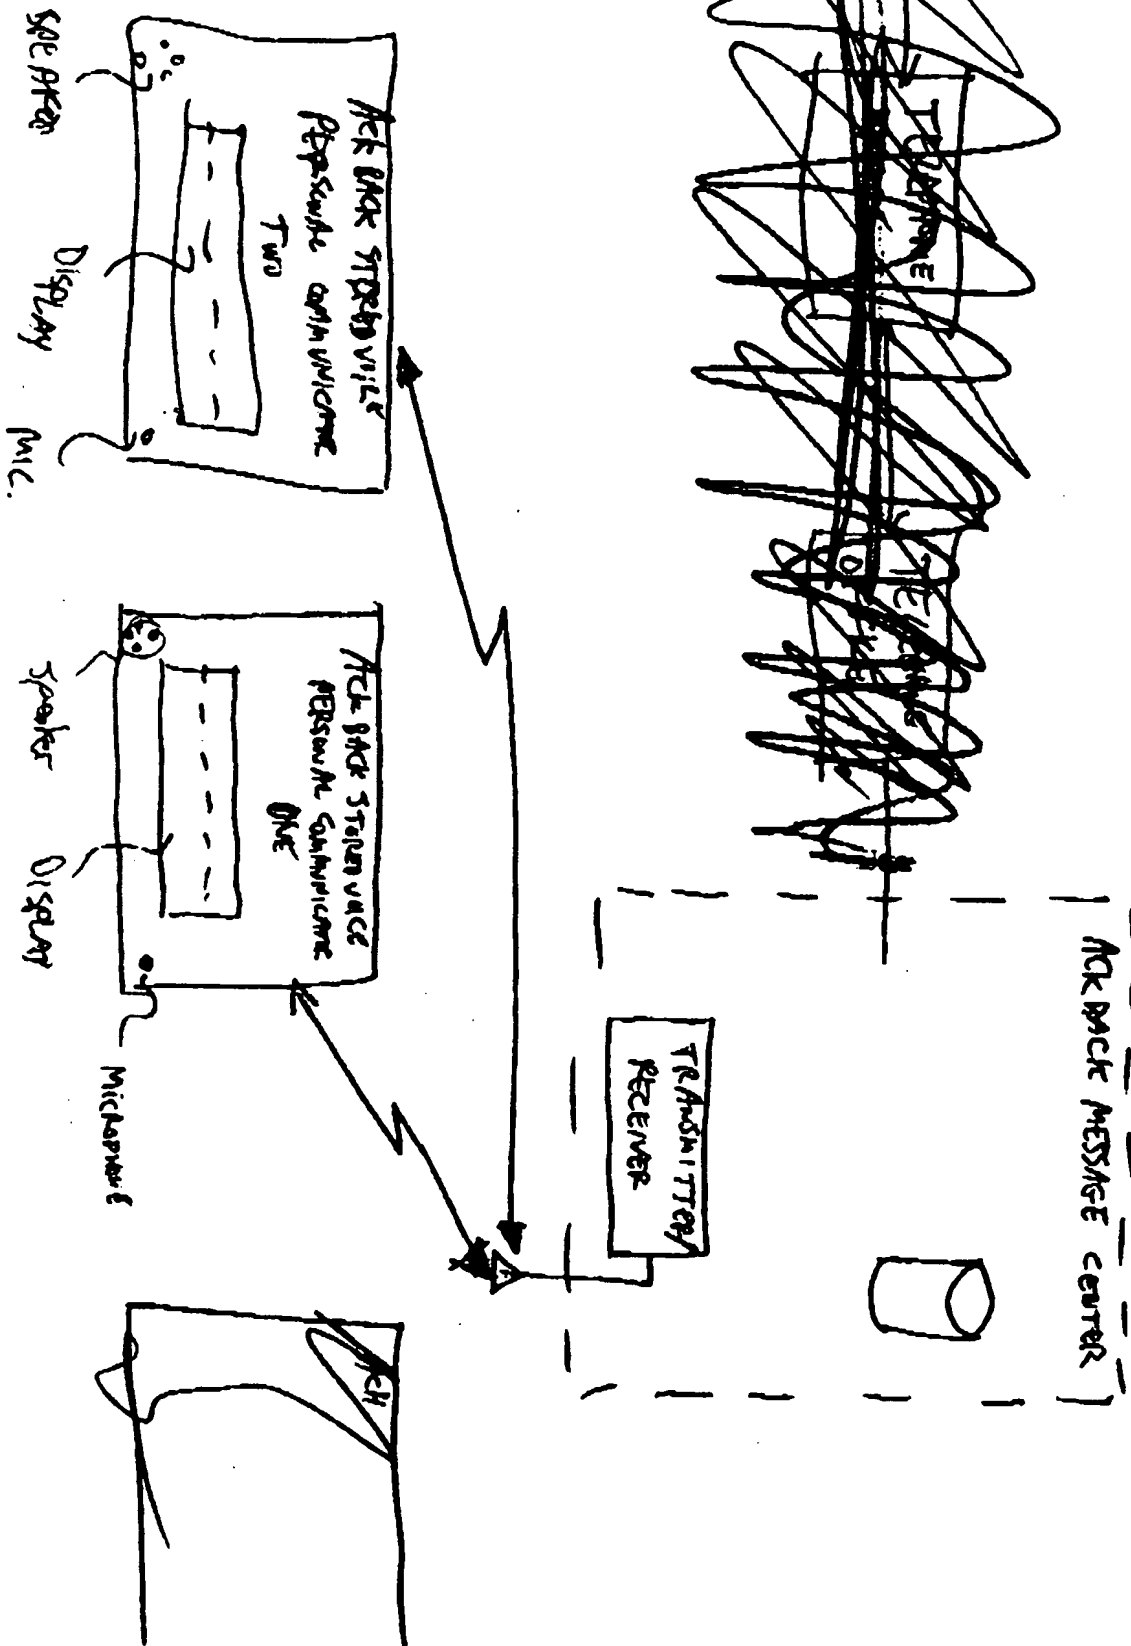 ACK BACK MESSAGE CENTER
TRANSMITTER/
RECEIVER
ACK BACK STORED VOICE
PERSONAL COMMUNICATOR
TWO
SPEAKER
DISPLAY
MIC.
ACK BACK STORED VOICE
PERSONAL COMMUNICATOR
ONE
Speaker
DISPLAY
MICROPHONE
ACK